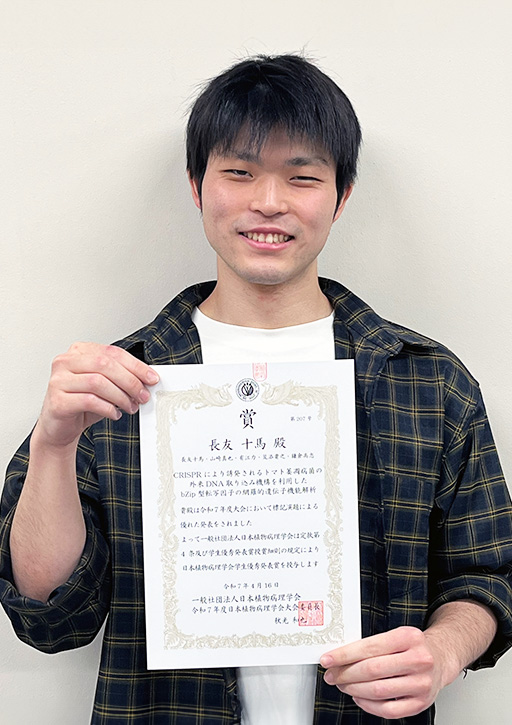 賞
第207号
長友 十馬 殿
CRISPRにより誘発されるトマト萎凋病菌の
外来DNA取り込み機構を利用した
bZip型転写因子の網羅的遺伝子機能解析
貴殿は令和7年度大会において標記演題による
優れた発表をされました
よって一般社団法人日本植物病理学会は定款第
4条及び学生優秀発表賞授賞細則の規定により
日本植物病理学会学生優秀発表賞を授与します
令和7年4月16日
一般社団法人日本植物病理学会
令和7年度日本植物病理学会大会委員長
秋光 和也